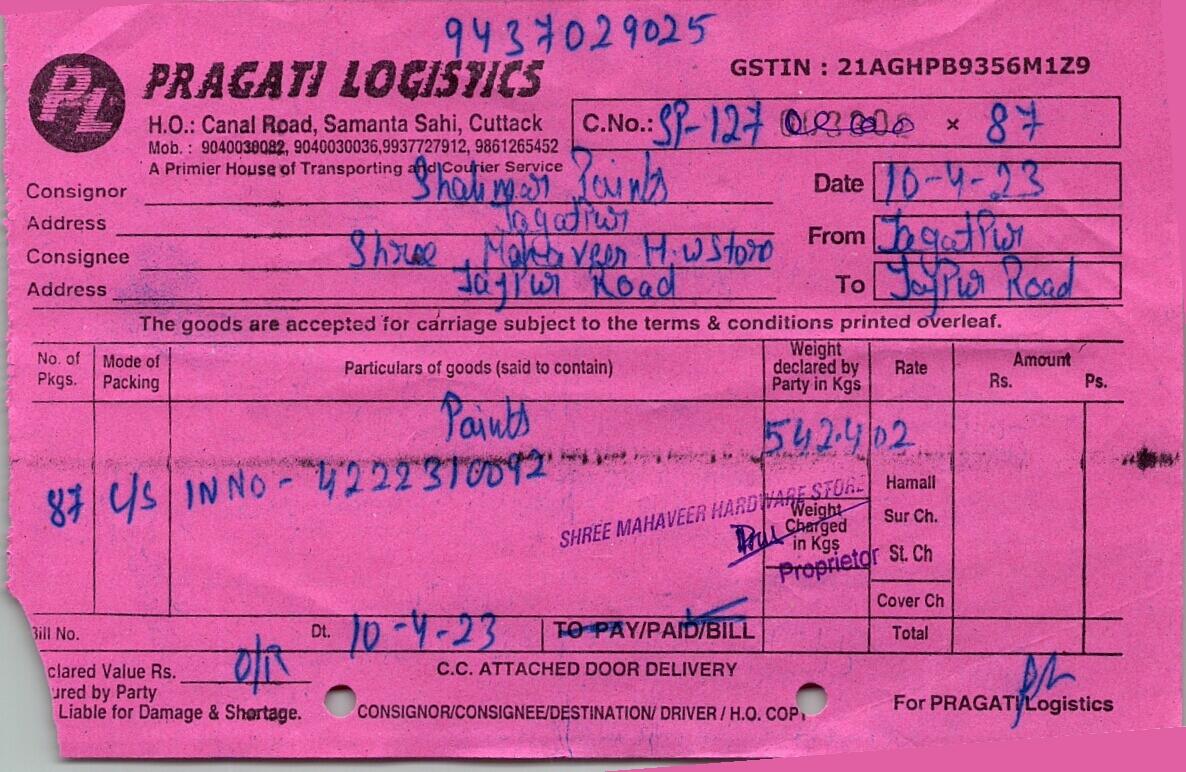 9437029025
PL PRAGATI LOGISTICS
GSTIN : 21AGHPB9356M1Z9
H.O.: Canal Road, Samanta Sahi, Cuttack
Mob. : 9040030082, 9040030036,9937727912, 9861265452
A Primier House of Transporting and Courier Service
C.No.: SP-127 × 87
Consignor Shalimar Paints
Date 10-4-23
Address Jagatpur
From Jagatpur
Consignee Shree Mahaveer H.W Store
Address Jajpur Road
To Jajpur Road
The goods are accepted for carriage subject to the terms & conditions printed overleaf.
No. of Pkgs. Mode of Packing Particulars of goods (said to contain) Weight declared by Party in Kgs Rate Amount Rs. Ps.
Paints 542.402
87 C/S IN NO - 4222310092
SHREE MAHAVEER HARDWARE STORE
Proprietor
Weight Charged in Kgs
Hamall
Sur Ch.
St. Ch
Cover Ch
Bill No. Dt. 10-4-23 TO PAY/PAID/BILL Total
clared Value Rs. O/R C.C. ATTACHED DOOR DELIVERY
ured by Party
Liable for Damage & Shortage. CONSIGNOR/CONSIGNEE/DESTINATION/ DRIVER / H.O. COPY
For PRAGATI Logistics